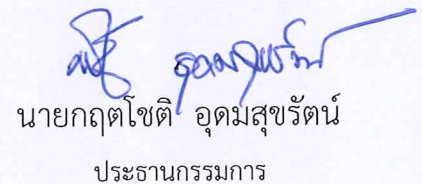 นายกฤตโชติ อุดมสุขรัตน์
ประธานกรรมการ